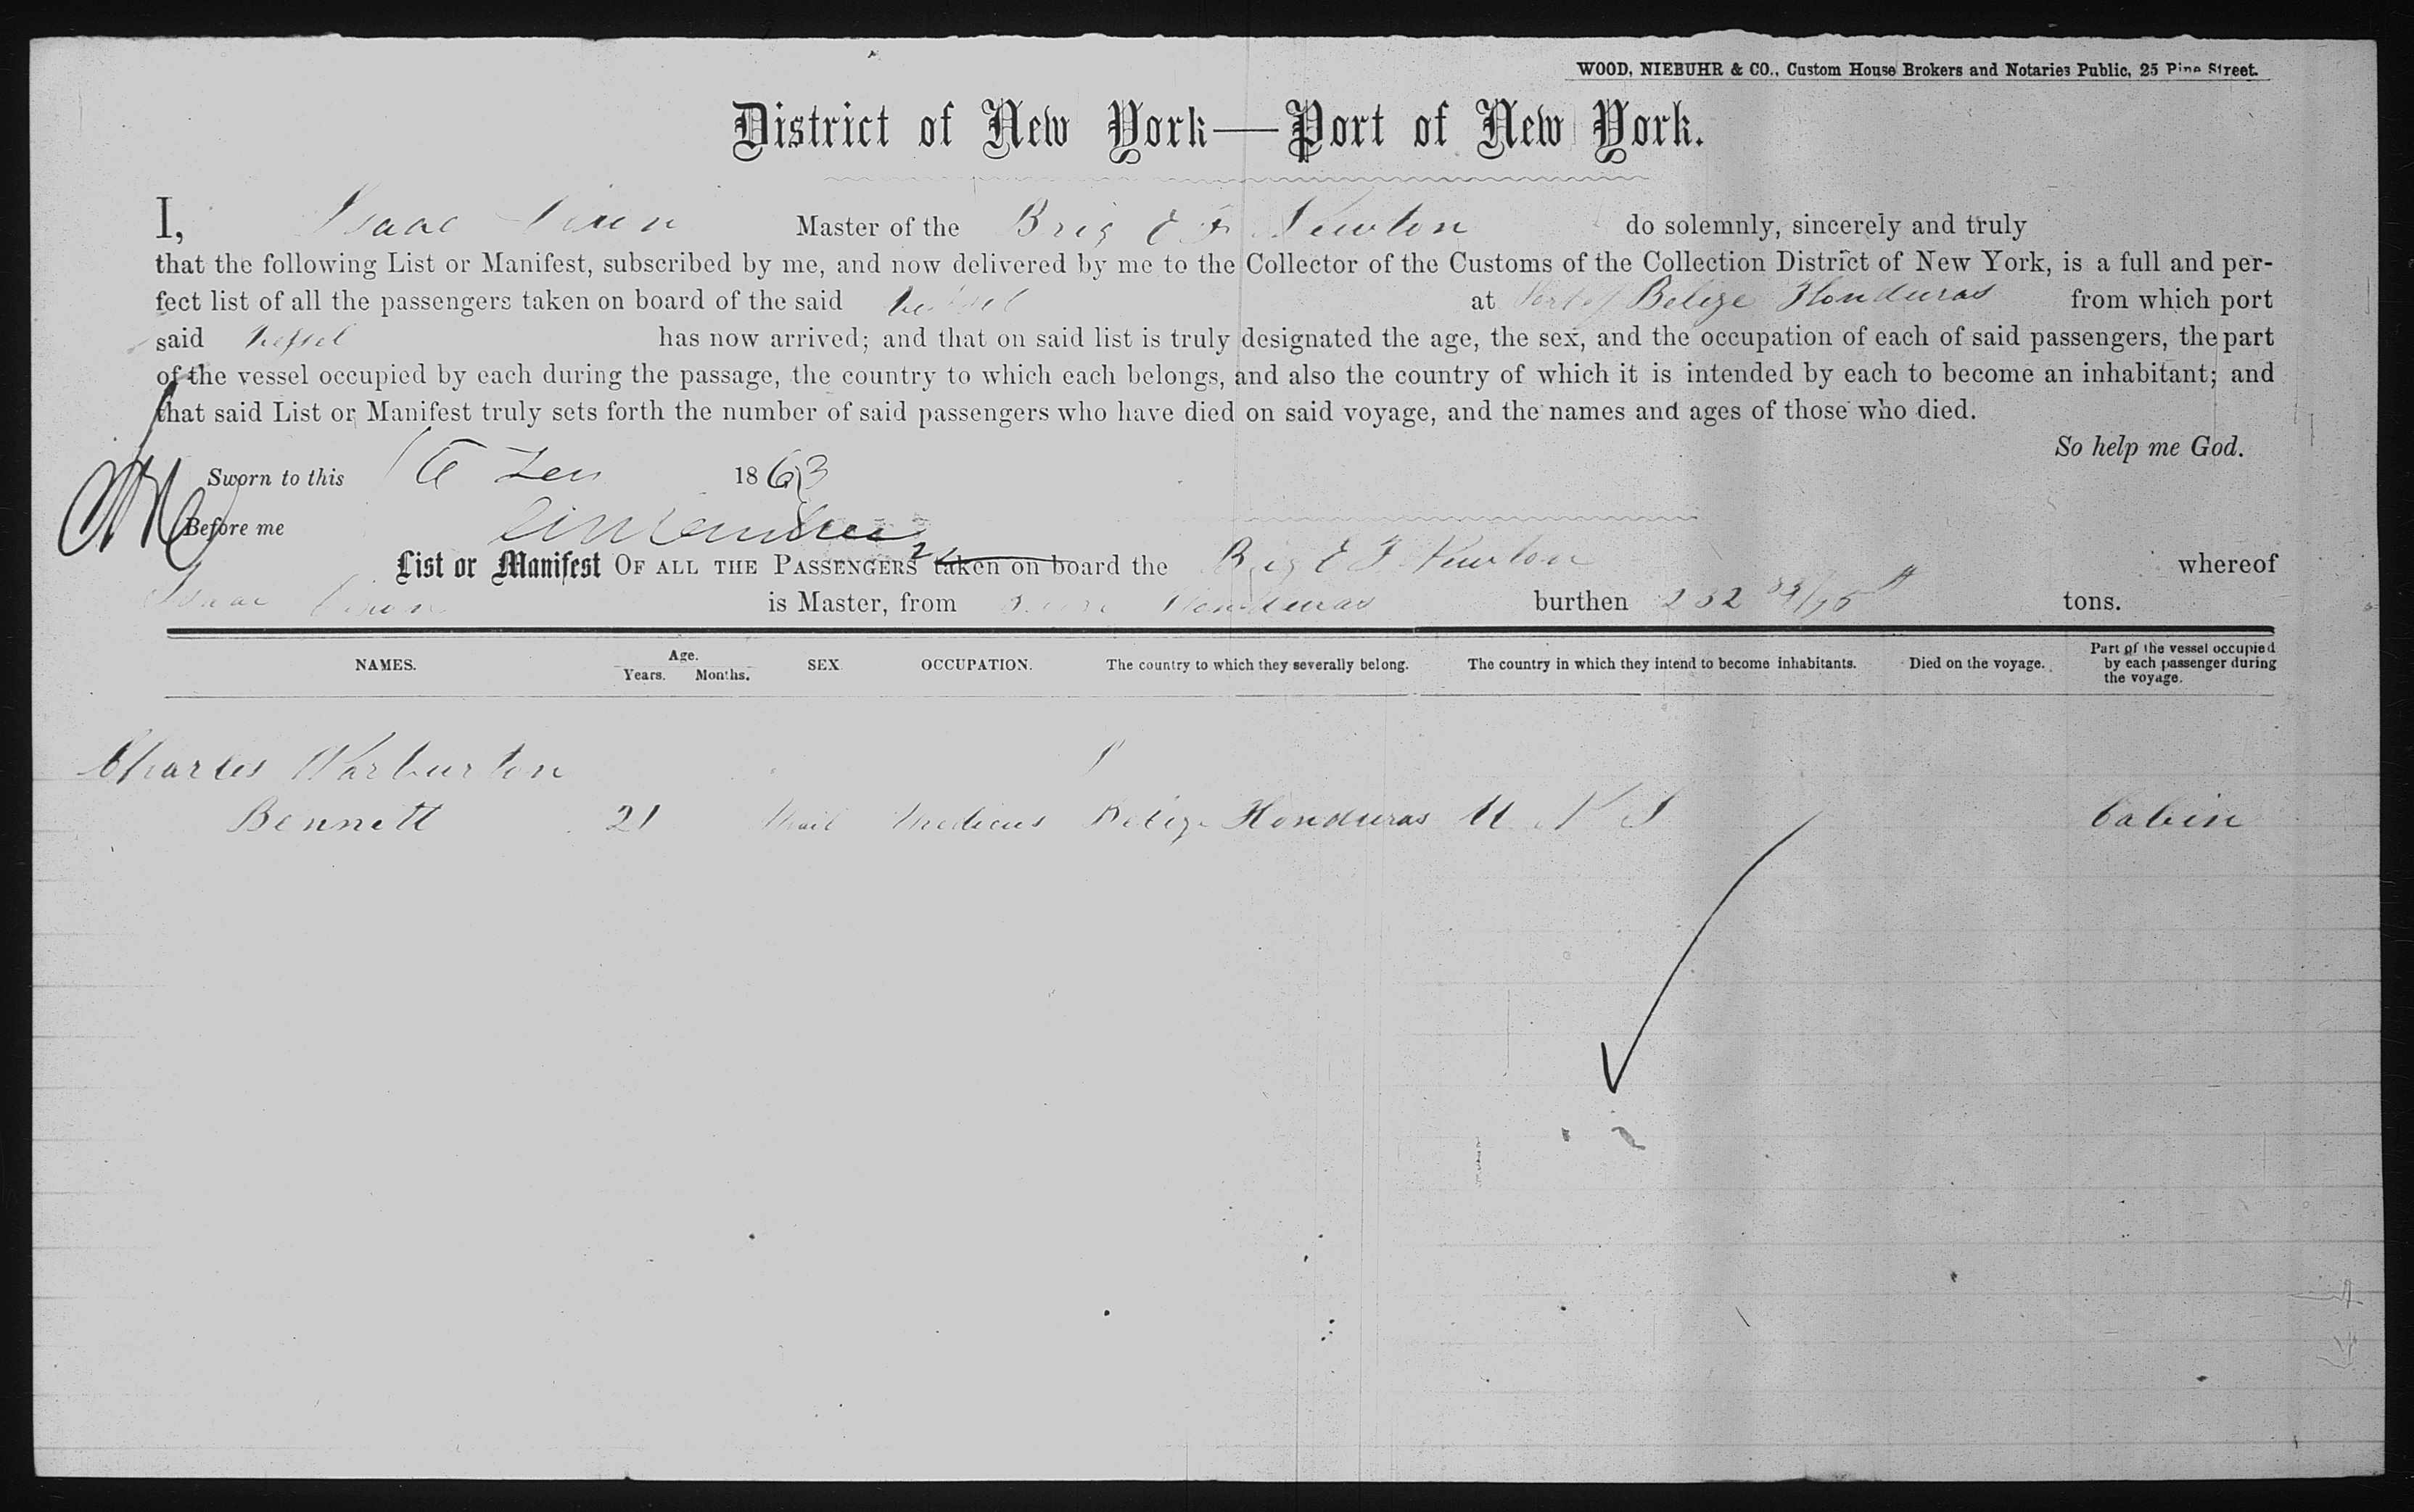 WOOD, NIEBUHR & CO., Custom House Brokers and Notaries Public, 25 Pine Street.
District of New York—Port of New York.
I, Isaac Master of the Brig E F Newton do solemnly, sincerely and truly
that the following List or Manifest, subscribed by me, and now delivered by me to the Collector of the Customs of the Collection District of New York, is a full and per-
fect list of all the passengers taken on board of the said vessel at Port of Belize Honduras from which port
said vessel has now arrived; and that on said list is truly designated the age, the sex, and the occupation of each of said passengers, the part
of the vessel occupied by each during the passage, the country to which each belongs, and also the country of which it is intended by each to become an inhabitant; and
that said List or Manifest truly sets forth the number of said passengers who have died on said voyage, and the names and ages of those who died.
So help me God.
Sworn to this 1863
Before me
List or Manifest OF ALL THE PASSENGERS taken on board the Brig E F Newton whereof
Isaac is Master, from Honduras burthen 232 tons.
NAMES. Age. Years. Months. SEX. OCCUPATION. The country to which they severally belong. The country in which they intend to become inhabitants. Died on the voyage. Part of the vessel occupied by each passenger during the voyage.
Charles Warburton
Bennett 21 Mail Medicus Belize Honduras Cabin